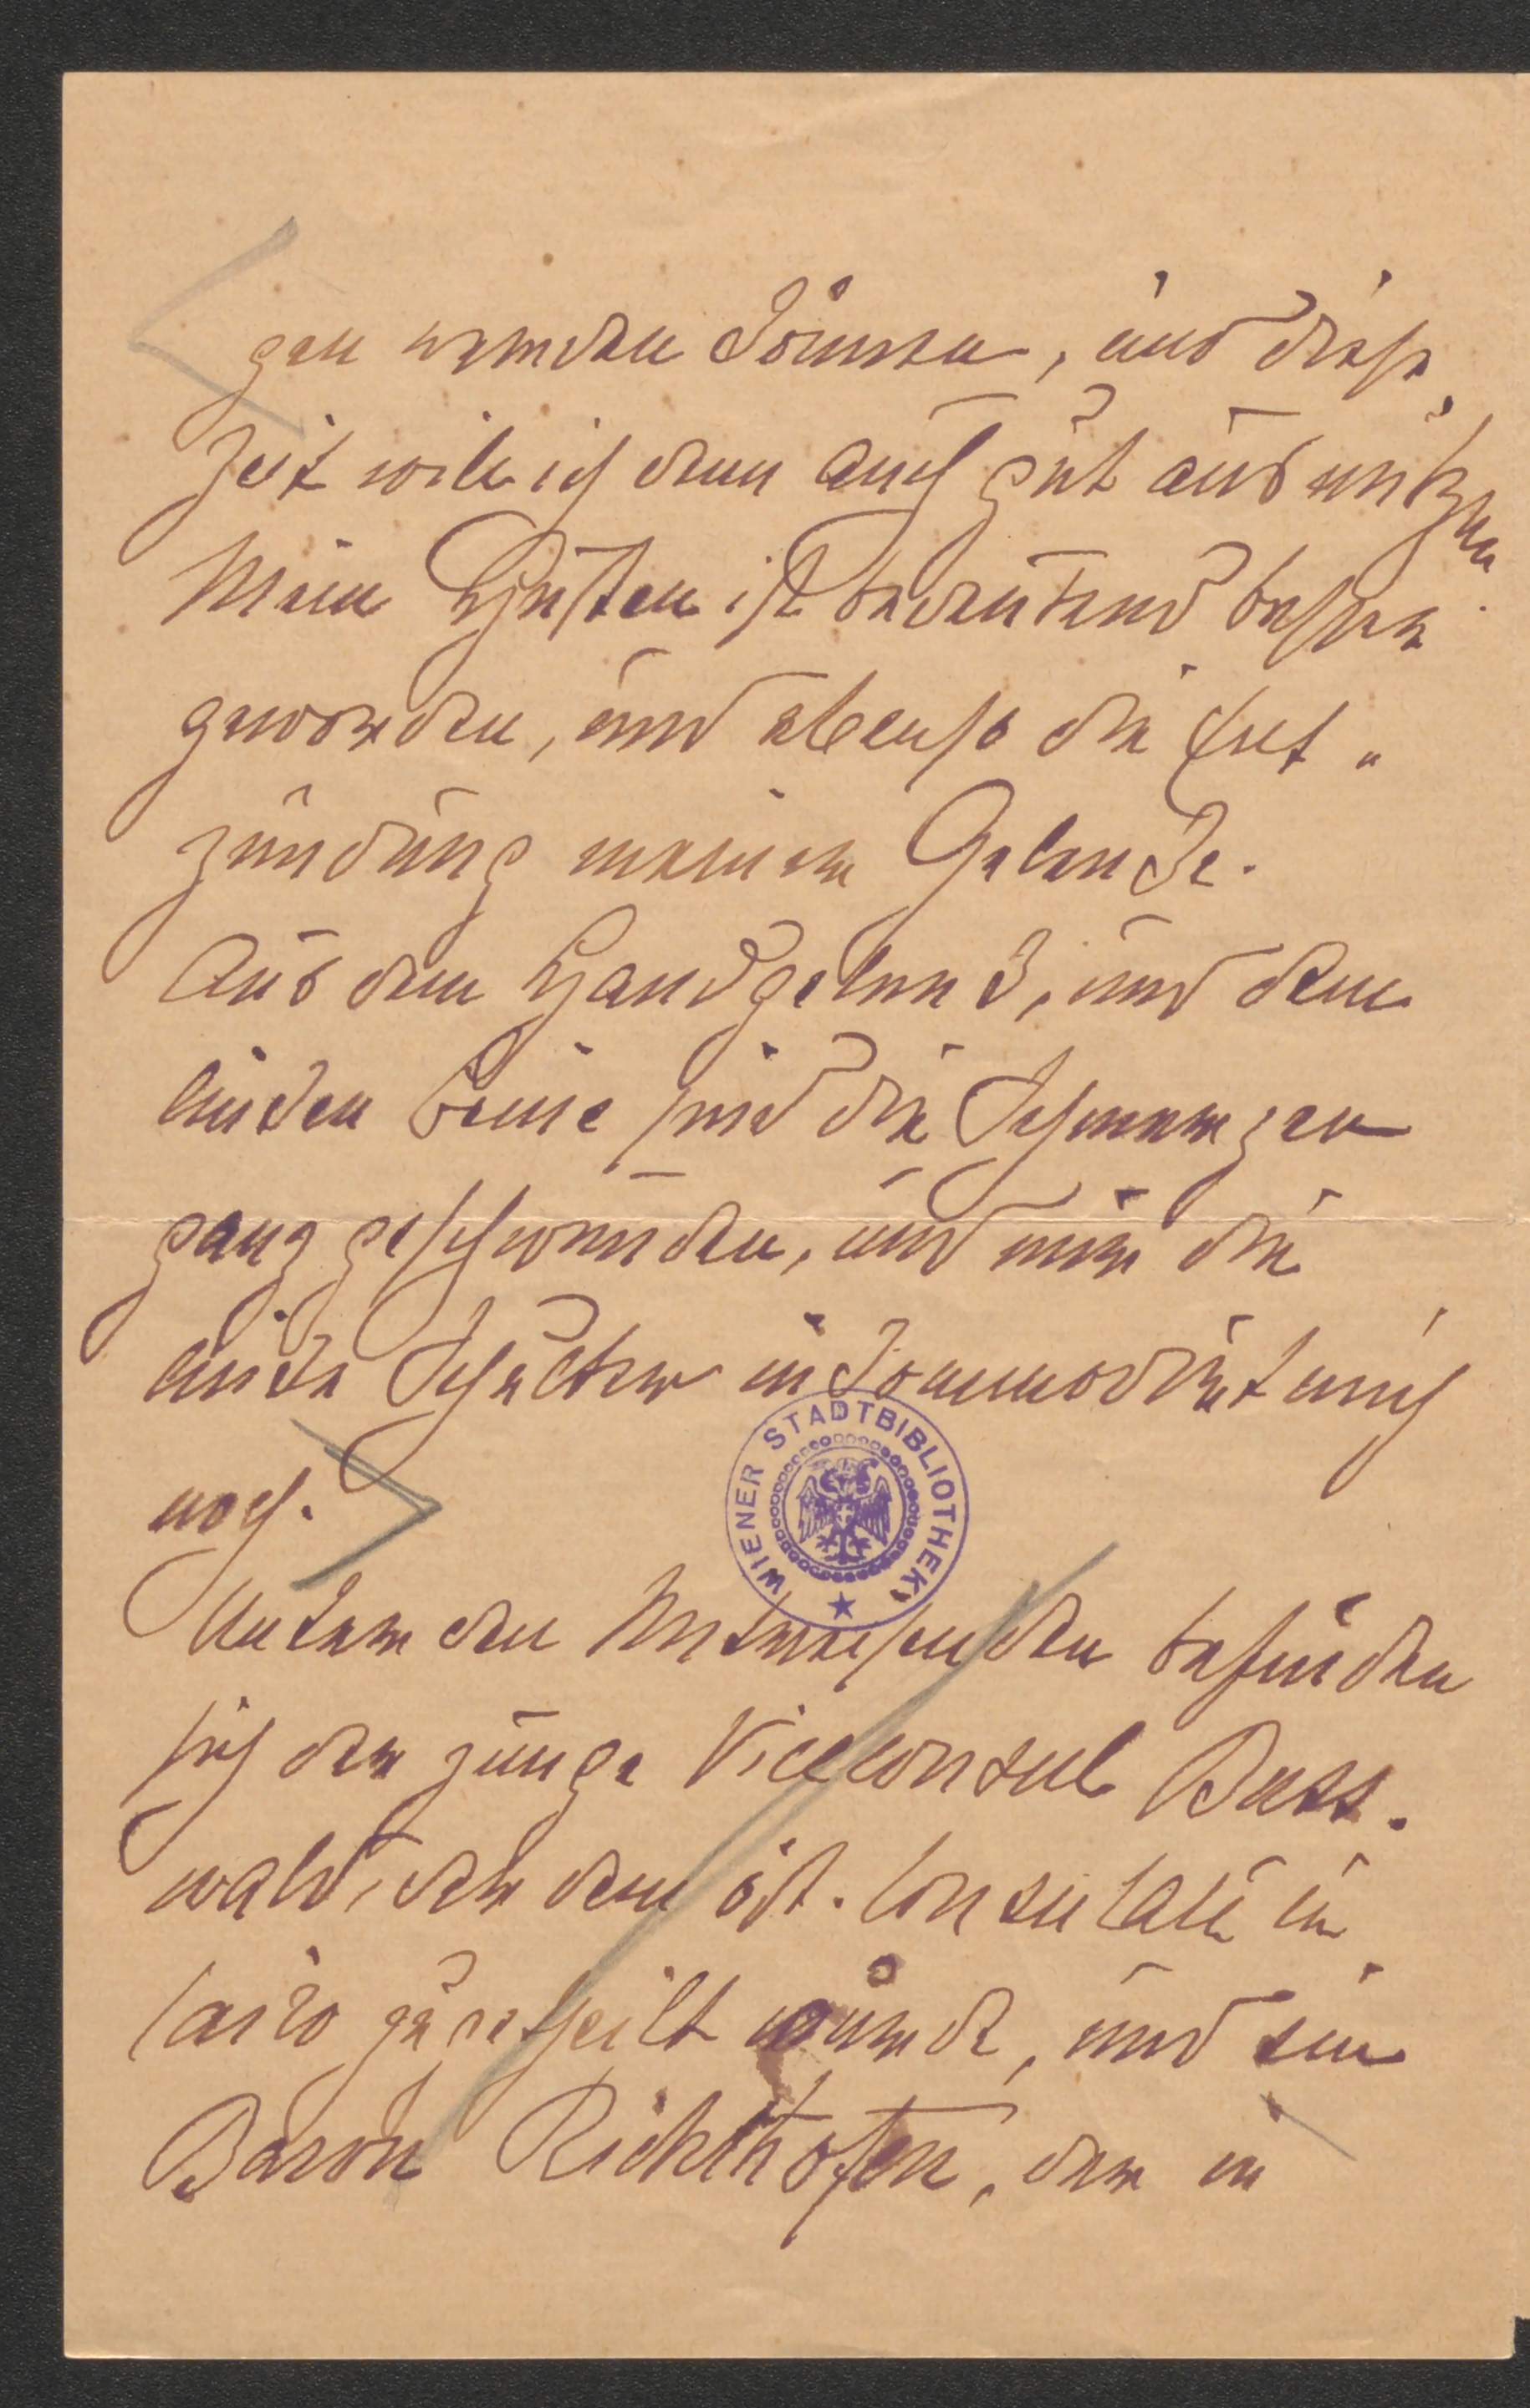 gen werden können, und diese
Zeit will ich denn auch gut ausnützen
Mein Husten ist bedeutend besser
geworden, und ebenso die Ent-
zündung meiner Gelenke.
Aus dem Handgelenk, und dem
linken Beine sind die Schmerzen
ganz geschwunden, und nur die
linke Schulter inkommodirt mich
noch.
WIENER STADTBIBLIOTHEK
Unter den Mitreisenden befinden
sich der junge Viceconsul Buss.
wald, der dem öst. Consulate in
Cairo zugetheilt wurde, und ein
Baron Richthofen, der in